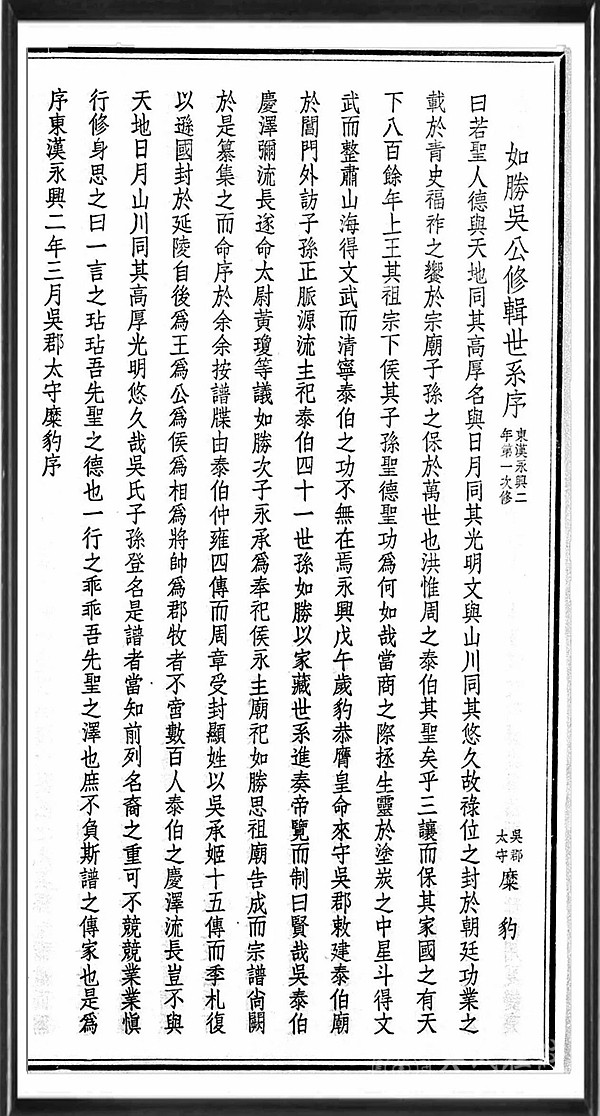 如勝吳公修輯世系序
東漢永興二
年第一次修
吳郡
太守
糜豹
曰若聖人德與天地同其高厚名與日月同其光明文與山川同其悠久故祿位之封於朝廷功業之
載於青史福祚之饗於宗廟子孫之保於萬世也洪惟周之泰伯其聖矣乎三讓而保其家國之有天
下八百餘年上王其祖宗下侯其子孫聖德聖功為何如哉當商之際拯生靈於塗炭之中星斗得文
武而整肅山海得文武而清寧泰伯之功不無在焉永興戊午歲豹恭膺皇命來守吳郡敕建泰伯廟
於閶門外訪子孫正脈源流主祀泰伯四十一世孫如勝以家藏世系進奏帝覽而制曰賢哉吳泰伯
慶澤彌流長遂命太尉黃瓊等議如勝次子永承為奉祀侯永主廟祀如勝思祖廟告成而宗譜尚闕
於是纂集之而命序於余余按譜牒由泰伯仲雍四傳而周章受封顯姓以吳承姬十五傳而季札復
以遜國封於延陵自後為王為公為侯為相為將帥為郡牧者不啻數百人泰伯之慶澤流長豈不與
天地日月山川同其高厚光明悠久哉吳氏子孫登名是譜者當知前列名裔之重可不競競業業慎
行修身思之曰一言之玷玷吾先聖之德也一行之乖乖吾先聖之澤也庶不負斯譜之傳家也是為
序東漢永興二年三月吳郡太守糜豹序